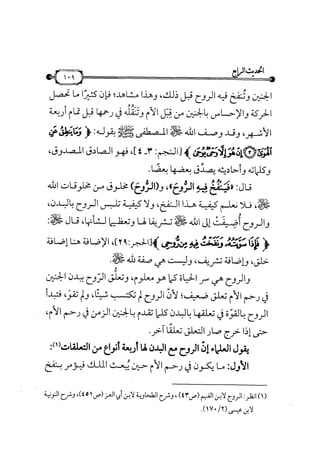 الحديث الرابع
١٠٩
الجنين وتُنفخ فيه الروح قبل ذلك، وهذا مشاهد؛ فإن كثيرًا ما تحصل
الحركة والإحساس بالجنين من قِبَل الأم وتَنَقُّله في رحمها قبل تمام أربعة
الأشهر، وقد وصف الله ﷻ المصطفى ﷺ بقوله: ﴿وَمَا يَنطِقُ عَنِ
الْهَوَىٰٓ ۝٣ إِنْ هُوَ إِلَّا وَحْيٌ يُوحَىٰ﴾ [النجم: ٣ـ٤]، فهو الصادق المصدوق،
وكلماته وأحاديثه يصدِّق بعضها بعضًا.
قال: «فَيَنْفُخُ فِيهِ الرُّوحَ»، و(الرُّوح) مخلوق من مخلوقات الله
ﷻ، فلا نعلم كيفية هذا النفخ، ولا كيفية تلبس الروح بالبدن،
والروح أُضيفَتْ إلى الله ﷻ تشريفا لها وتعظيما لشأنها، قال ﷻ:
﴿فَإِذَا سَوَّيْتُهُ وَنَفَخْتُ فِيهِ مِن رُّوحِي﴾ [الحجر: ٢٩]، الإضافة هنا إضافة
خلق، وإضافة تشريف، وليست هي صفة لله ﷻ.
والروح هي سر الحياة كما هو معلوم، وتعلُّق الرّوح ببدن الجنين
في رحم الأم تعلق ضعيف؛ لأنّ الروح لم تكتسب شيئًا، ولم تقوَ، فتبدأ
الروح بالقوّة في تعلقها بالبدن كلما تقدم بالجنين الزمن في رحم الأم،
حتى إذا خرج صار التعلق تعلقًا آخر.
يقول العلماء إنّ الروح مع البدن لها أربعة أنواع من التعلقات(١):
الأول: ما يكون في رحم الأم حين يُبعث الملك فيؤمر بنفخ
(١) انظر: الروح لابن القيم (ص٤٣)، وشرح الطحاوية لابن أبي العز (ص٤٥١)، وشرح النونية
لابن عيسى (٢/ ١٧٠).